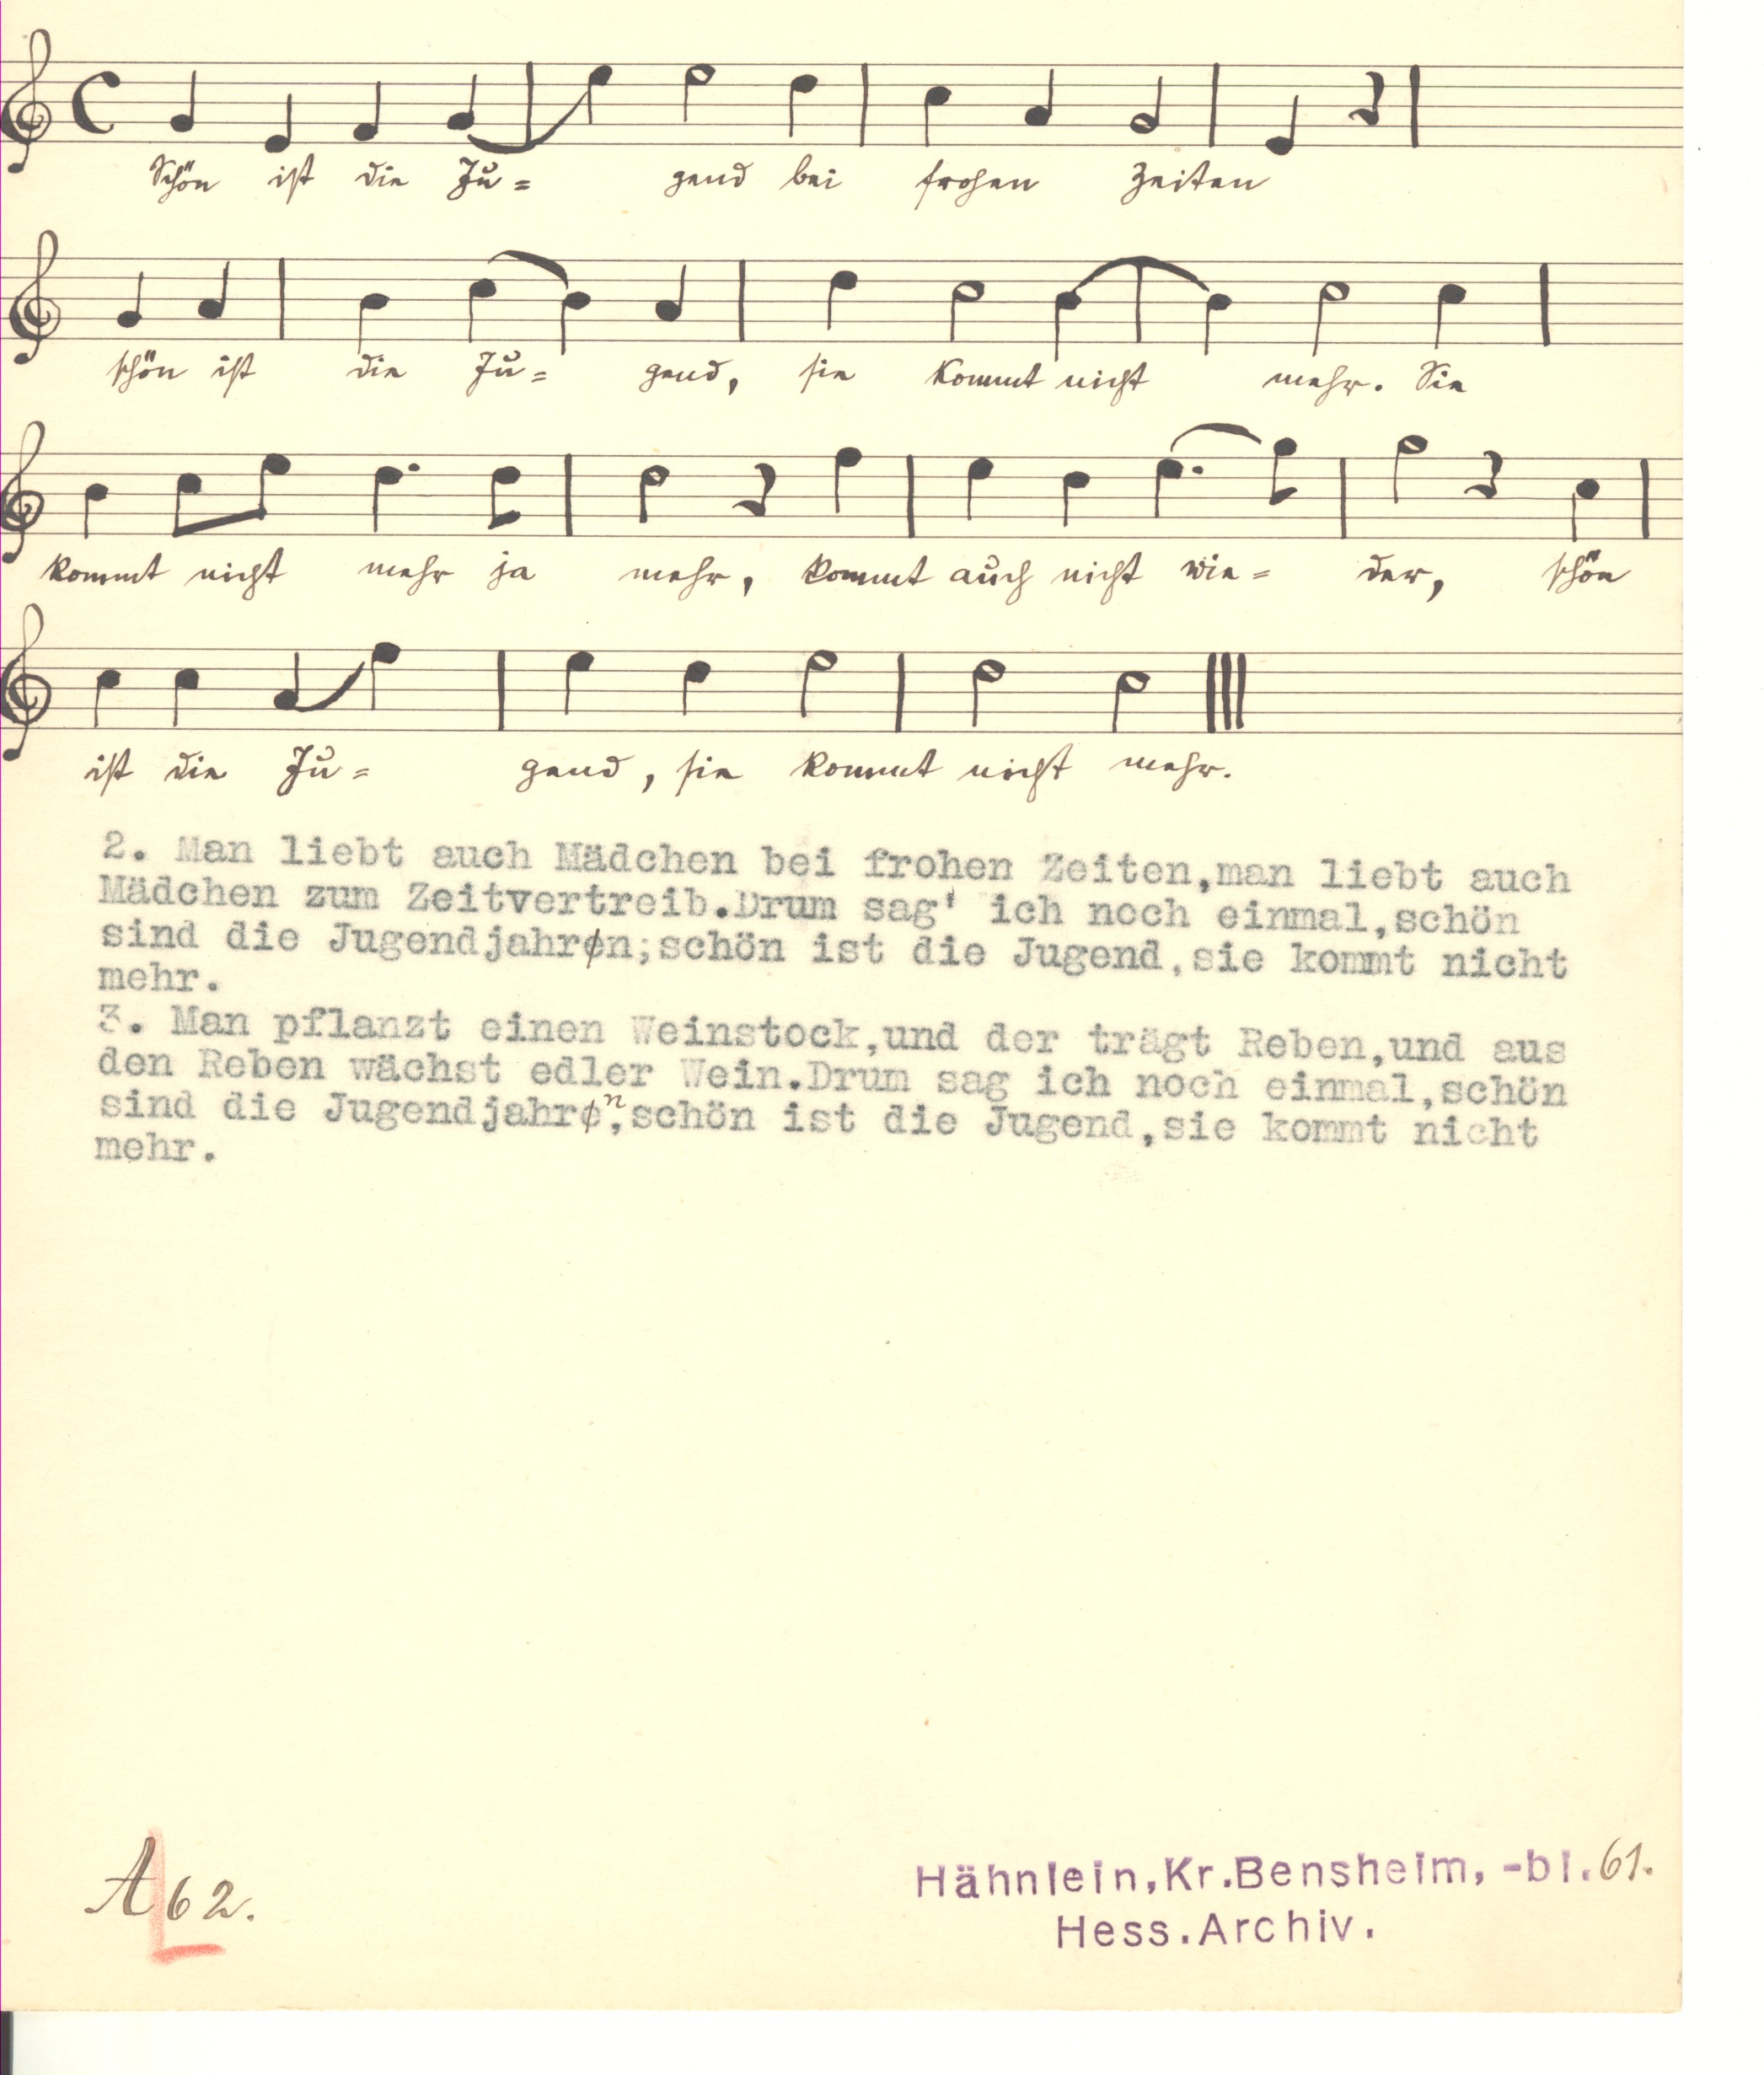 Schön ist die Ju= gend bei frohen Zeiten
schön ist die Ju= gend, sie kommt nicht mehr. Sie
kommt nicht mehr ja mehr, kommt auch nicht wie= der, schön
ist die Ju= gend, sie kommt nicht mehr.
2. Man liebt auch Mädchen bei frohen Zeiten,man liebt auch
Mädchen zum Zeitvertreib.Drum sag' ich noch einmal,schön
sind die Jugendjahren;schön ist die Jugend,sie kommt nicht
mehr.
3. Man pflanzt einen Weinstock,und der trägt Reben,und aus
den Reben wächst edler Wein.Drum sag ich noch einmal,schön
sind die Jugendjahren,schön ist die Jugend,sie kommt nicht
mehr.
A 62.
Hähnlein,Kr.Bensheim, -bl.61.
Hess.Archiv.